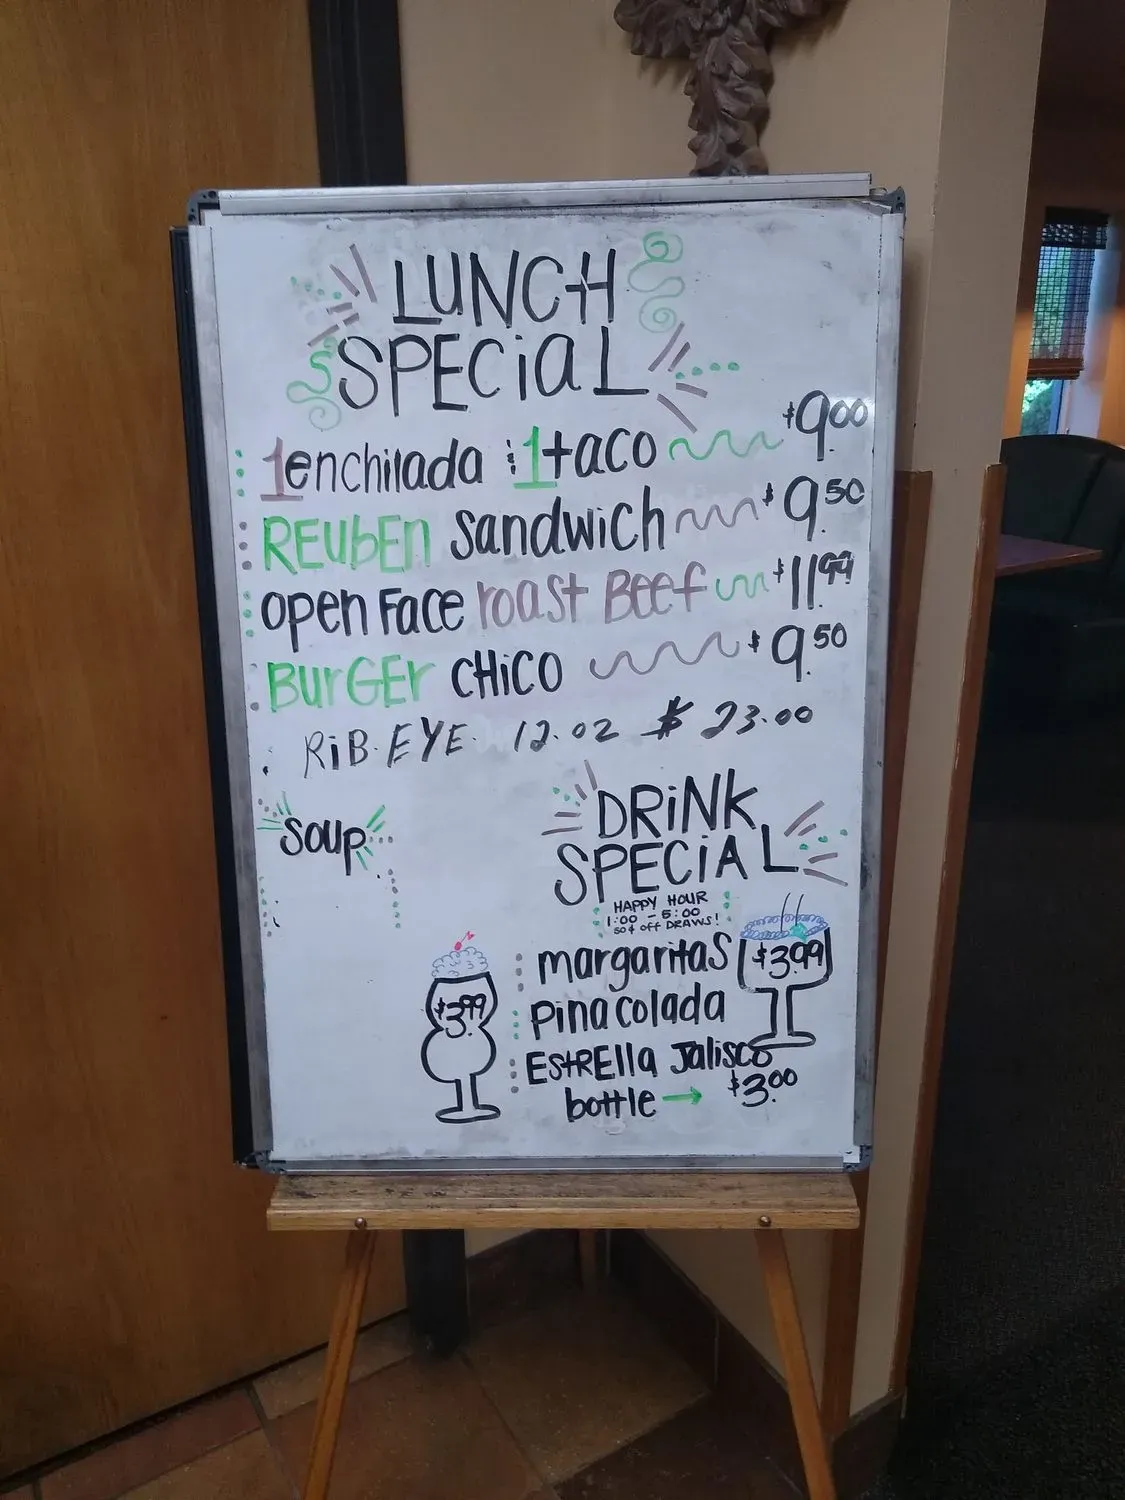 LUNCH
SPECiaL
1enchilada & 1taco $9.00
REubEn sandwich $9.50
open Face roast BEEF $11.99
BurGEr CHiCO $9.50
RiB. EYE 12.OZ $ 23.00
soup
DRiNK
SPECiAL
HAPPY HOUR
1:00 - 5:00
50¢ off DRAWS!
margaritas $3.99
pina colada $3.99
EstRElla Jalisco
bottle → $3.00